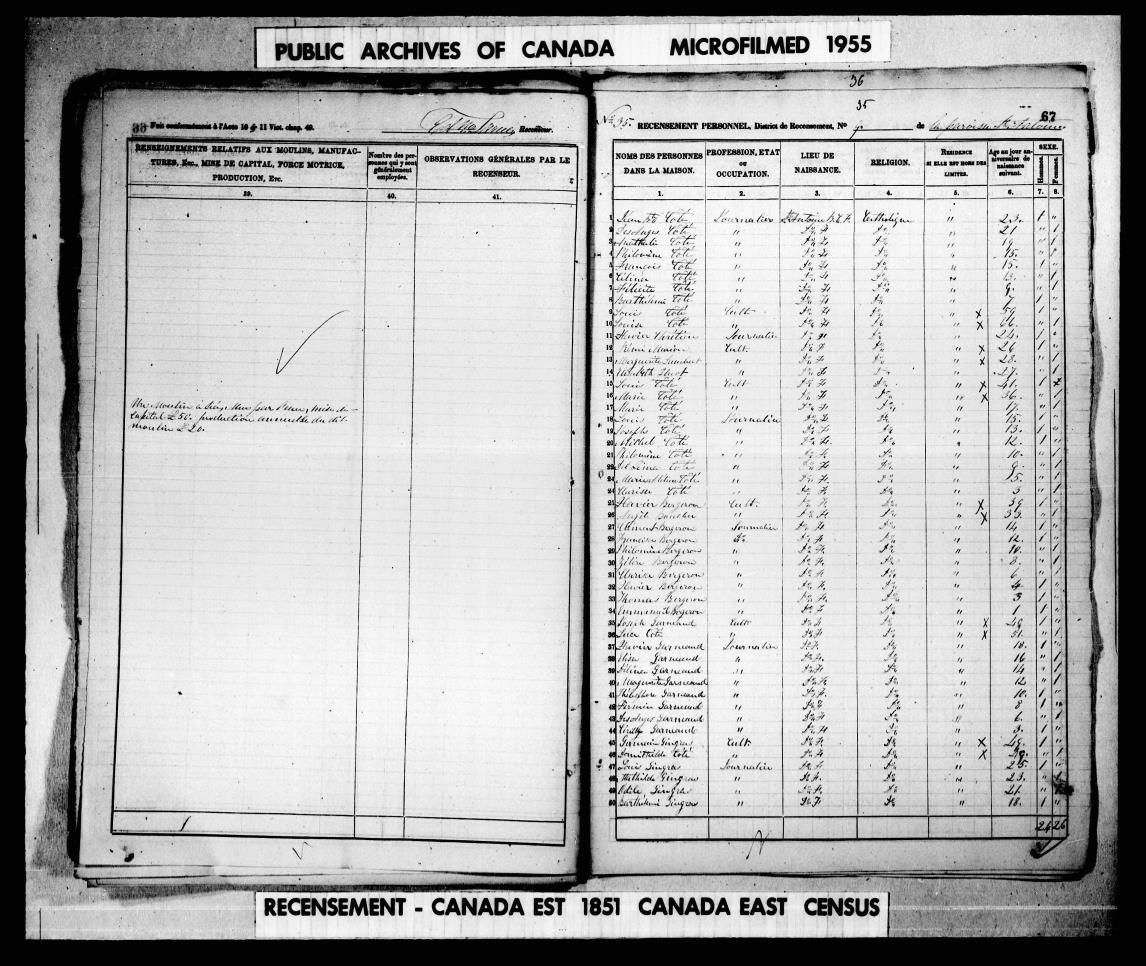 PUBLIC ARCHIVES OF CANADA MICROFILMED 1955
36
35
33 Fait conformément à l'Acte 10 & 11 Vict. chap. 49.
Recenseur.
RENSEIGNEMENTS RELATIFS AUX MOULINS, MANUFAC-
TURES, Etc., MISE DE CAPITAL, FORCE MOTRICE,
PRODUCTION, Etc.
Nombre des per-
sonnes qui y sont
généralement
employées.
OBSERVATIONS GÉNÉRALES PAR LE
RECENSEUR.
39. 40. 41.
Un Moulin à par l'eau, mise de
Capital £50. production annuelle du dit
moulin £20.
1
No 35. 67
RECENSEMENT PERSONNEL, District de Recensement, No de la paroisse St Antoine
NOMS DES PERSONNES
DANS LA MAISON.
PROFESSION, ETAT
ou
OCCUPATION.
LIEU DE
NAISSANCE.
RELIGION.
RÉSIDENCE
SI ELLE EST HORS DES
LIMITES.
Age au jour an-
niversaire de
naissance
suivant.
SEXE.
Hommes. Femmes.
1. 2. 3. 4. 5. 6. 7. 8.
1 Jean Bte Coté Journalier St Antoine B.C. F. Catholique " 23. 1 "
2 Desanges Coté " do F. do " 21 " 1
3 Mathilde Coté " do F. do " 19 " 1
4 Philomène Coté " do F. do " 15. " 1
5 François Coté " do F. do " 15. 1 "
6 Coté " do F. do " 13. " 1
7 Félicité Coté " do F. do " 9. " 1
8 Barthélemi Coté " do F. do " 7 1 "
9 Louis Coté Cult. do F. do " X 1 "
10 Louise Coté " do F. do " X 66. " 1
11 Journalier do " 24. 1 "
12 Rémi Cult. do F. do " X 26 1 "
13 Marguerite " do F. do " X 28. " 1
14 " do F. do " 27. " 1
15 Louis Coté Cult do F. do " X 41. 1
16 Marie Coté " do F. do " X 36. " 1
17 Marie Coté " do F. do " 17. " 1
18 Louis Coté Journalier do F. do " 15. 1 "
19 Joseph Coté " do F. do " 13. 1 "
20 Michel Coté " do F. do " 12. 1 "
21 Philomène Coté " do F. do " 10. " 1
22 Coté " do F. do " 9. " 1
23 Marie Coté " do F. do " 5. " 1
24 Coté " do F. do " 3 " 1
25 Flavier Bergeron Cult. do F. do " X 39. 1 "
26 Boucher " do F. do " X 33. " 1
27 Clément Bergeron Journalier do F. do " 14. 1 "
28 Bergeron do do F. do " 12. 1 "
29 Philomène Bergeron " do F. do " 10. " 1
30 Bergeron " do F. do " 8. " 1
31 Clarisse Bergeron " do F. do " 6. " 1
32 Flavier Bergeron " do F. do " 4 1 "
33 Thomas Bergeron " do F. do " 3 1 "
34 Bergeron " do F. do " 1 1 "
35 Joseph Garneaud Cult do F. do " X 49. 1 "
36 Luce Coté " do F. do " X 51. " 1
37 Flavier Garneaud Journalier do F. do " 18. 1 "
38 Garneaud " do F. do " 16 " 1
39 Garneaud " do F. do " 14 " 1
40 Marguerite Garneaud " do F. do " 12. " 1
41 Garneaud " do F. do " 10. 1 "
42 Garneaud " do F. do " 8 1 "
43 Desanges Garneaud " do F. do " 6. " 1
44 Garneaud " do F. do " 3. 1 "
45 Germain Gingras Cult. do F. do " X 49. 1 "
46 Domithilde Coté " do F. do " X " 1
47 Louis Gingras Journalier do F. do " 25. 1 "
48 Mathilde Gingras " do F. do " 23. " 1
49 Odile Gingras " do F. do " 21. " 1
50 Barthélemi Gingras " do F. do " 18. 1 "
24 26
RECENSEMENT - CANADA EST 1851 CANADA EAST CENSUS